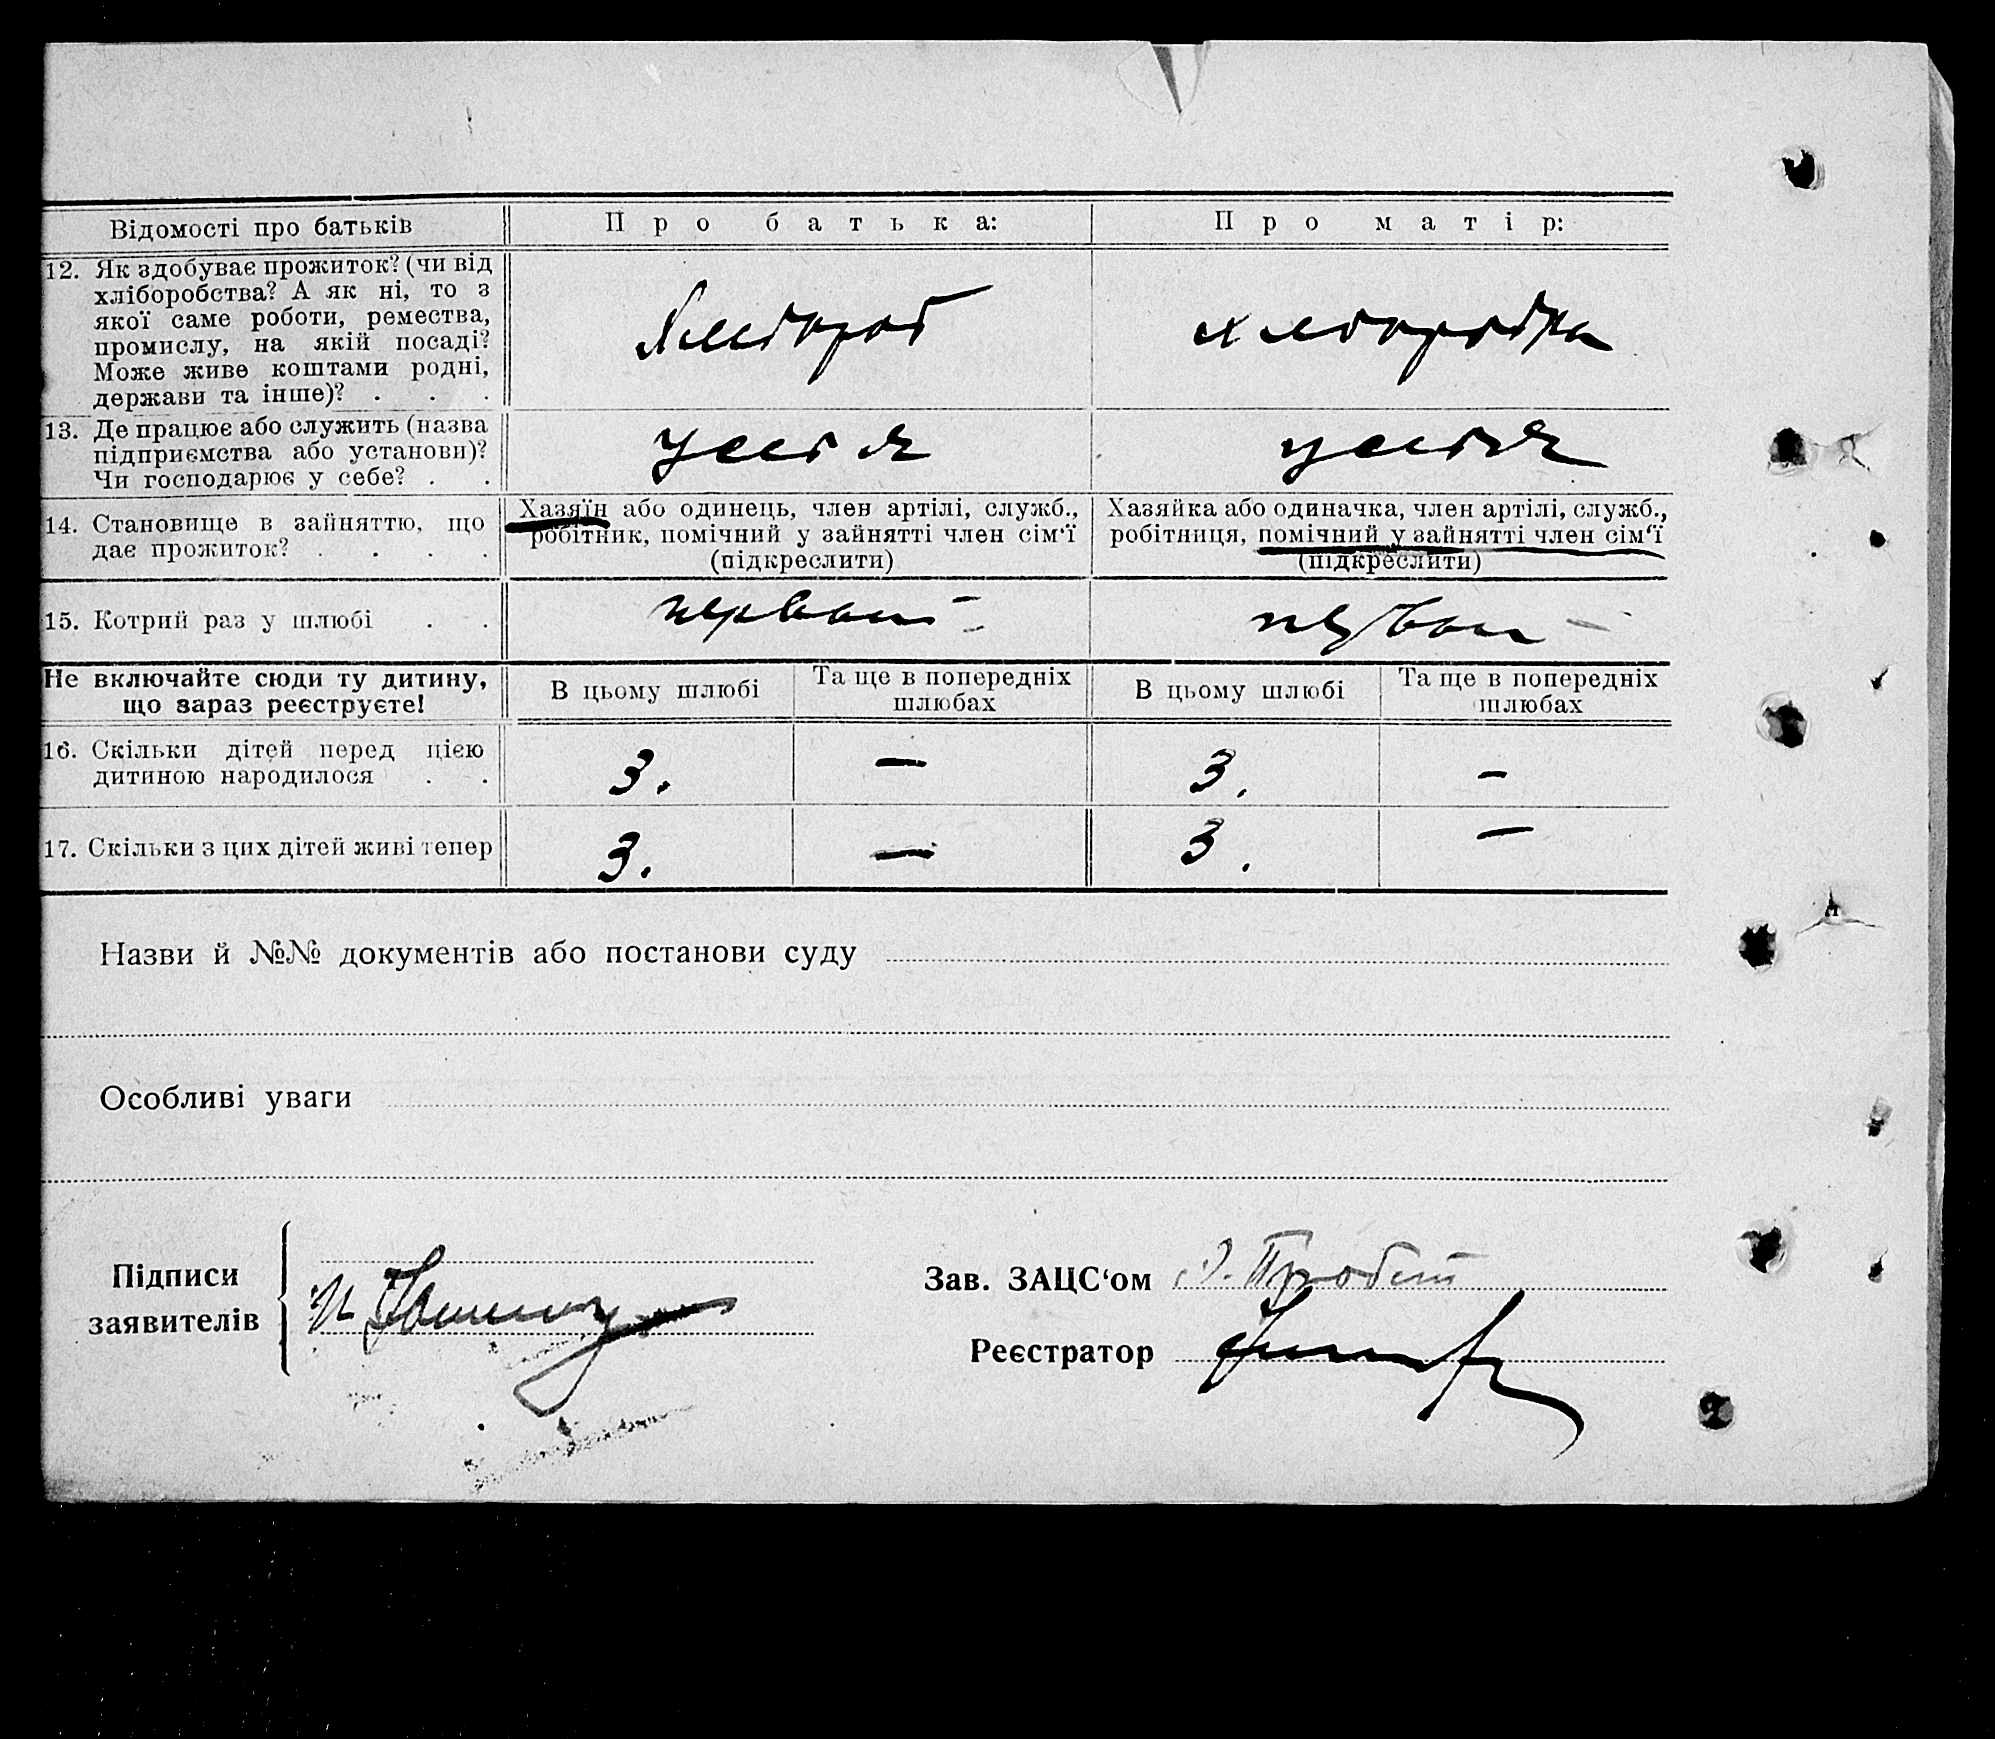 Відомості про батьків
Про батька:
Про матір:
12. Як здобуває прожиток? (чи від
хліборобства? А як ні, то з
якої саме роботи, ремества,
промислу, на якій посаді?
Може живе коштами родні,
держави та інше)? . . .
Хлібороб
Хліборобка
13. Де працює або служить (назва
підприємства або установи)?
Чи господарює у себе? . .
у себя
у себя
14. Становище в зайняттю, що
дає прожиток? . . . .
Хазяїн або одинець, член артілі, служб.,
робітник, помічний у зайнятті член сім'ї
(підкреслити)
Хазяйка або одиначка, член артілі, служб.,
робітниця, помічний у зайнятті член сім'ї
(підкреслити)
15. Котрий раз у шлюбі . .
Не включайте сюди ту дитину,
що зараз реєструєте!
В цьому шлюбі
Та ще в попередніх
шлюбах
В цьому шлюбі
Та ще в попередніх
шлюбах
16. Скільки дітей перед цією
дитиною народилося . .
3. — 3. —
17. Скільки з цих дітей живі тепер
3. — 3. —
Назви й №№ документів або постанови суду
Особливі уваги
Підписи
заявителів
Зав. ЗАЦС'ом
Реєстратор